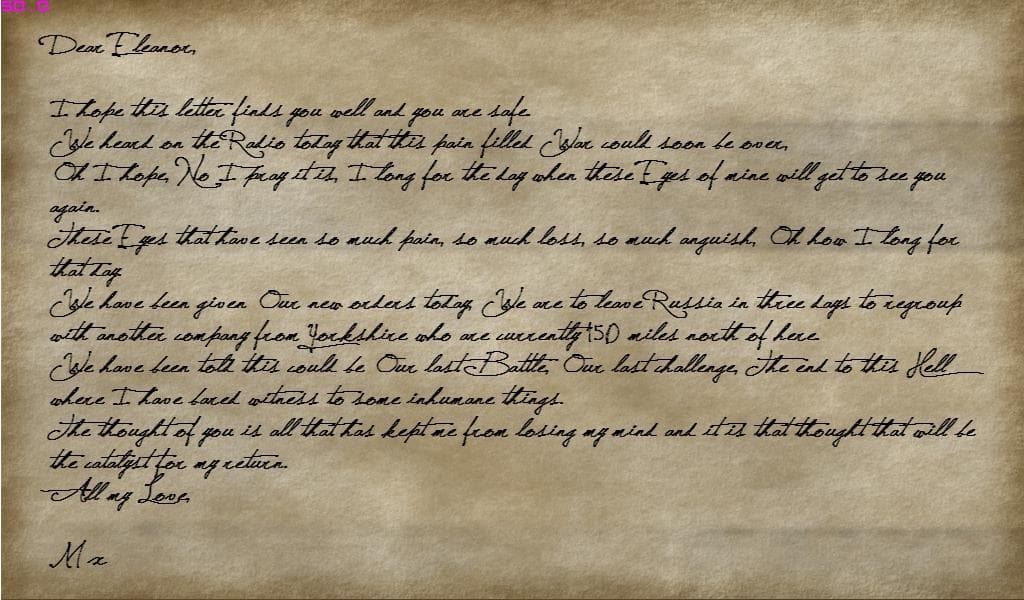 50.0
Dear Eleanor,
I hope this letter finds you well and you are safe.
We heard on the Radio today that this pain filled War could soon be over,
Oh I hope, No I pray it is, I long for the day when these Eyes of mine will get to see you
again.
These Eyes that have seen so much pain, so much loss, so much anguish, Oh how I long for
that day.
We have been given Our new orders today, We are to leave Russia in three days to regroup
with another company from Yorkshire who are currently 150 miles north of here.
We have been told this could be Our last Battle, Our last challenge, The end to this Hell
where I have bared witness to some inhumane things.
The thought of you is all that has kept me from losing my mind and it is that thought that will be
the catalyst for my return.
All my Love,
M x